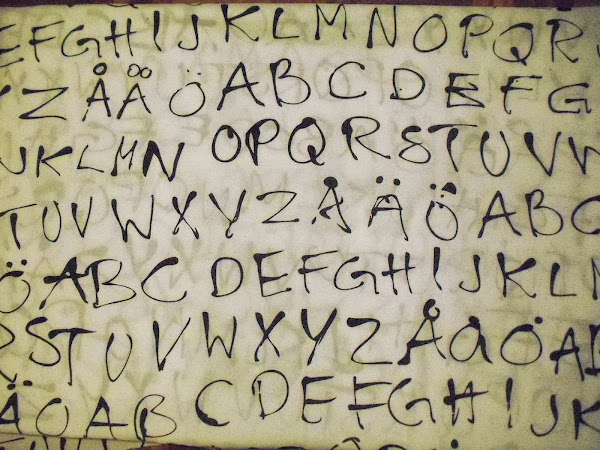 E F G H I J K L M N O P Q R
Y Z Å Ä Ö A B C D E F G
J K L M N O P Q R S T U V W
T U V W X Y Z Å Ä Ö A B C
Ö A B C D E F G H I J K L M
R S T U V W X Y Z Å Ä Ö A B
Ä Ö A B C D E F G H I J K